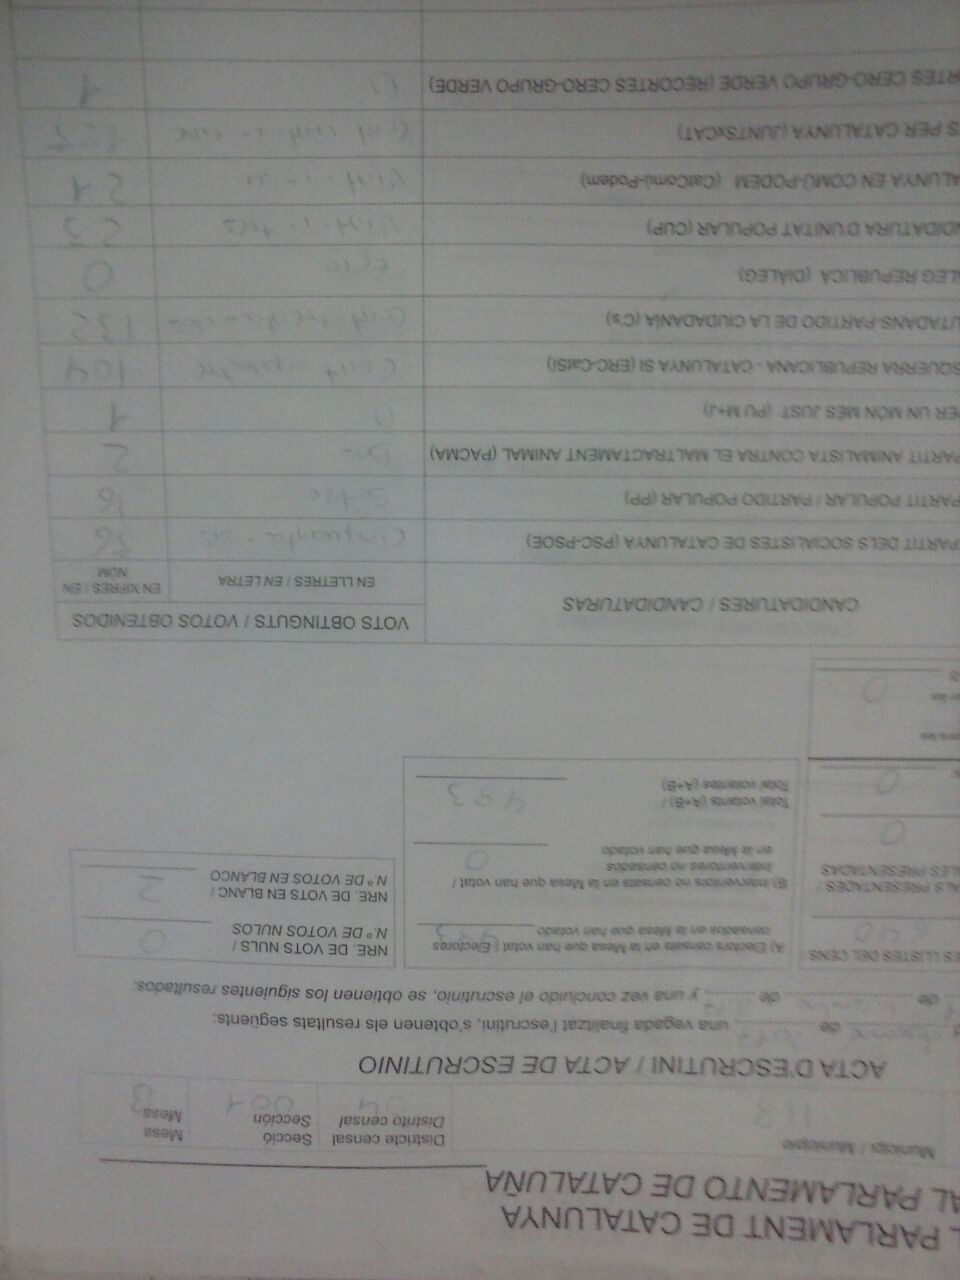 L PARLAMENT DE CATALUNYA
AL PARLAMENTO DE CATALUÑA
Municipi / Municipio 118
Districte censal Secció Mesa
Distrito censal Sección Mesa
04 001 B
ACTA D'ESCRUTINI / ACTA DE ESCRUTINIO
de una vegada finalitzat l'escrutini, s'obtenen els resultats següents:
de de y una vez concluido el escrutinio, se obtienen los siguientes resultados:
ES LLISTES DEL CENS /
ALS PRESENTADES /
LES PRESENTADAS
0
0
0
A) Electors censats en la Mesa que han votat / Electores
censados en la Mesa que han votado
B) Interventors no censats en la Mesa que han votat /
Interventores no censados
en la Mesa que han votado 0
Total votants (A+B) /
Total votantes (A+B) 483
NRE. DE VOTS NULS /
N.º DE VOTOS NULOS 0
NRE. DE VOTS EN BLANC /
N.º DE VOTOS EN BLANCO 2
CANDIDATURES / CANDIDATURAS
VOTS OBTINGUTS / VOTOS OBTENIDOS
EN LLETRES / EN LETRA
EN XIFRES / EN
NÚM
PARTIT DELS SOCIALISTES DE CATALUNYA (PSC-PSOE) Cinquanta-sis 56
PARTIT POPULAR / PARTIDO POPULAR (PP) Setze 16
PARTIT ANIMALISTA CONTRA EL MALTRACTAMENT ANIMAL (PACMA) Dos 2
PER UN MÓN MÉS JUST (PUM+J) U 1
SQUERRA REPUBLICANA - CATALUNYA SÍ (ERC-CatSí) Cent quatre 104
UTADANS-PARTIDO DE LA CIUDADANÍA (C's)
LEG REPUBLICÀ (DIÀLEG) Zero 0
NDIDATURA D'UNITAT POPULAR (CUP) Vint-i-tres 23
ALUNYA EN COMÚ-PODEM (CatComú-Podem) Vint-i-u 21
S PER CATALUNYA (JUNTSxCAT) Cent vint-i-cinc
RTES CERO-GRUPO VERDE (RECORTES CERO-GRUPO VERDE) U 1